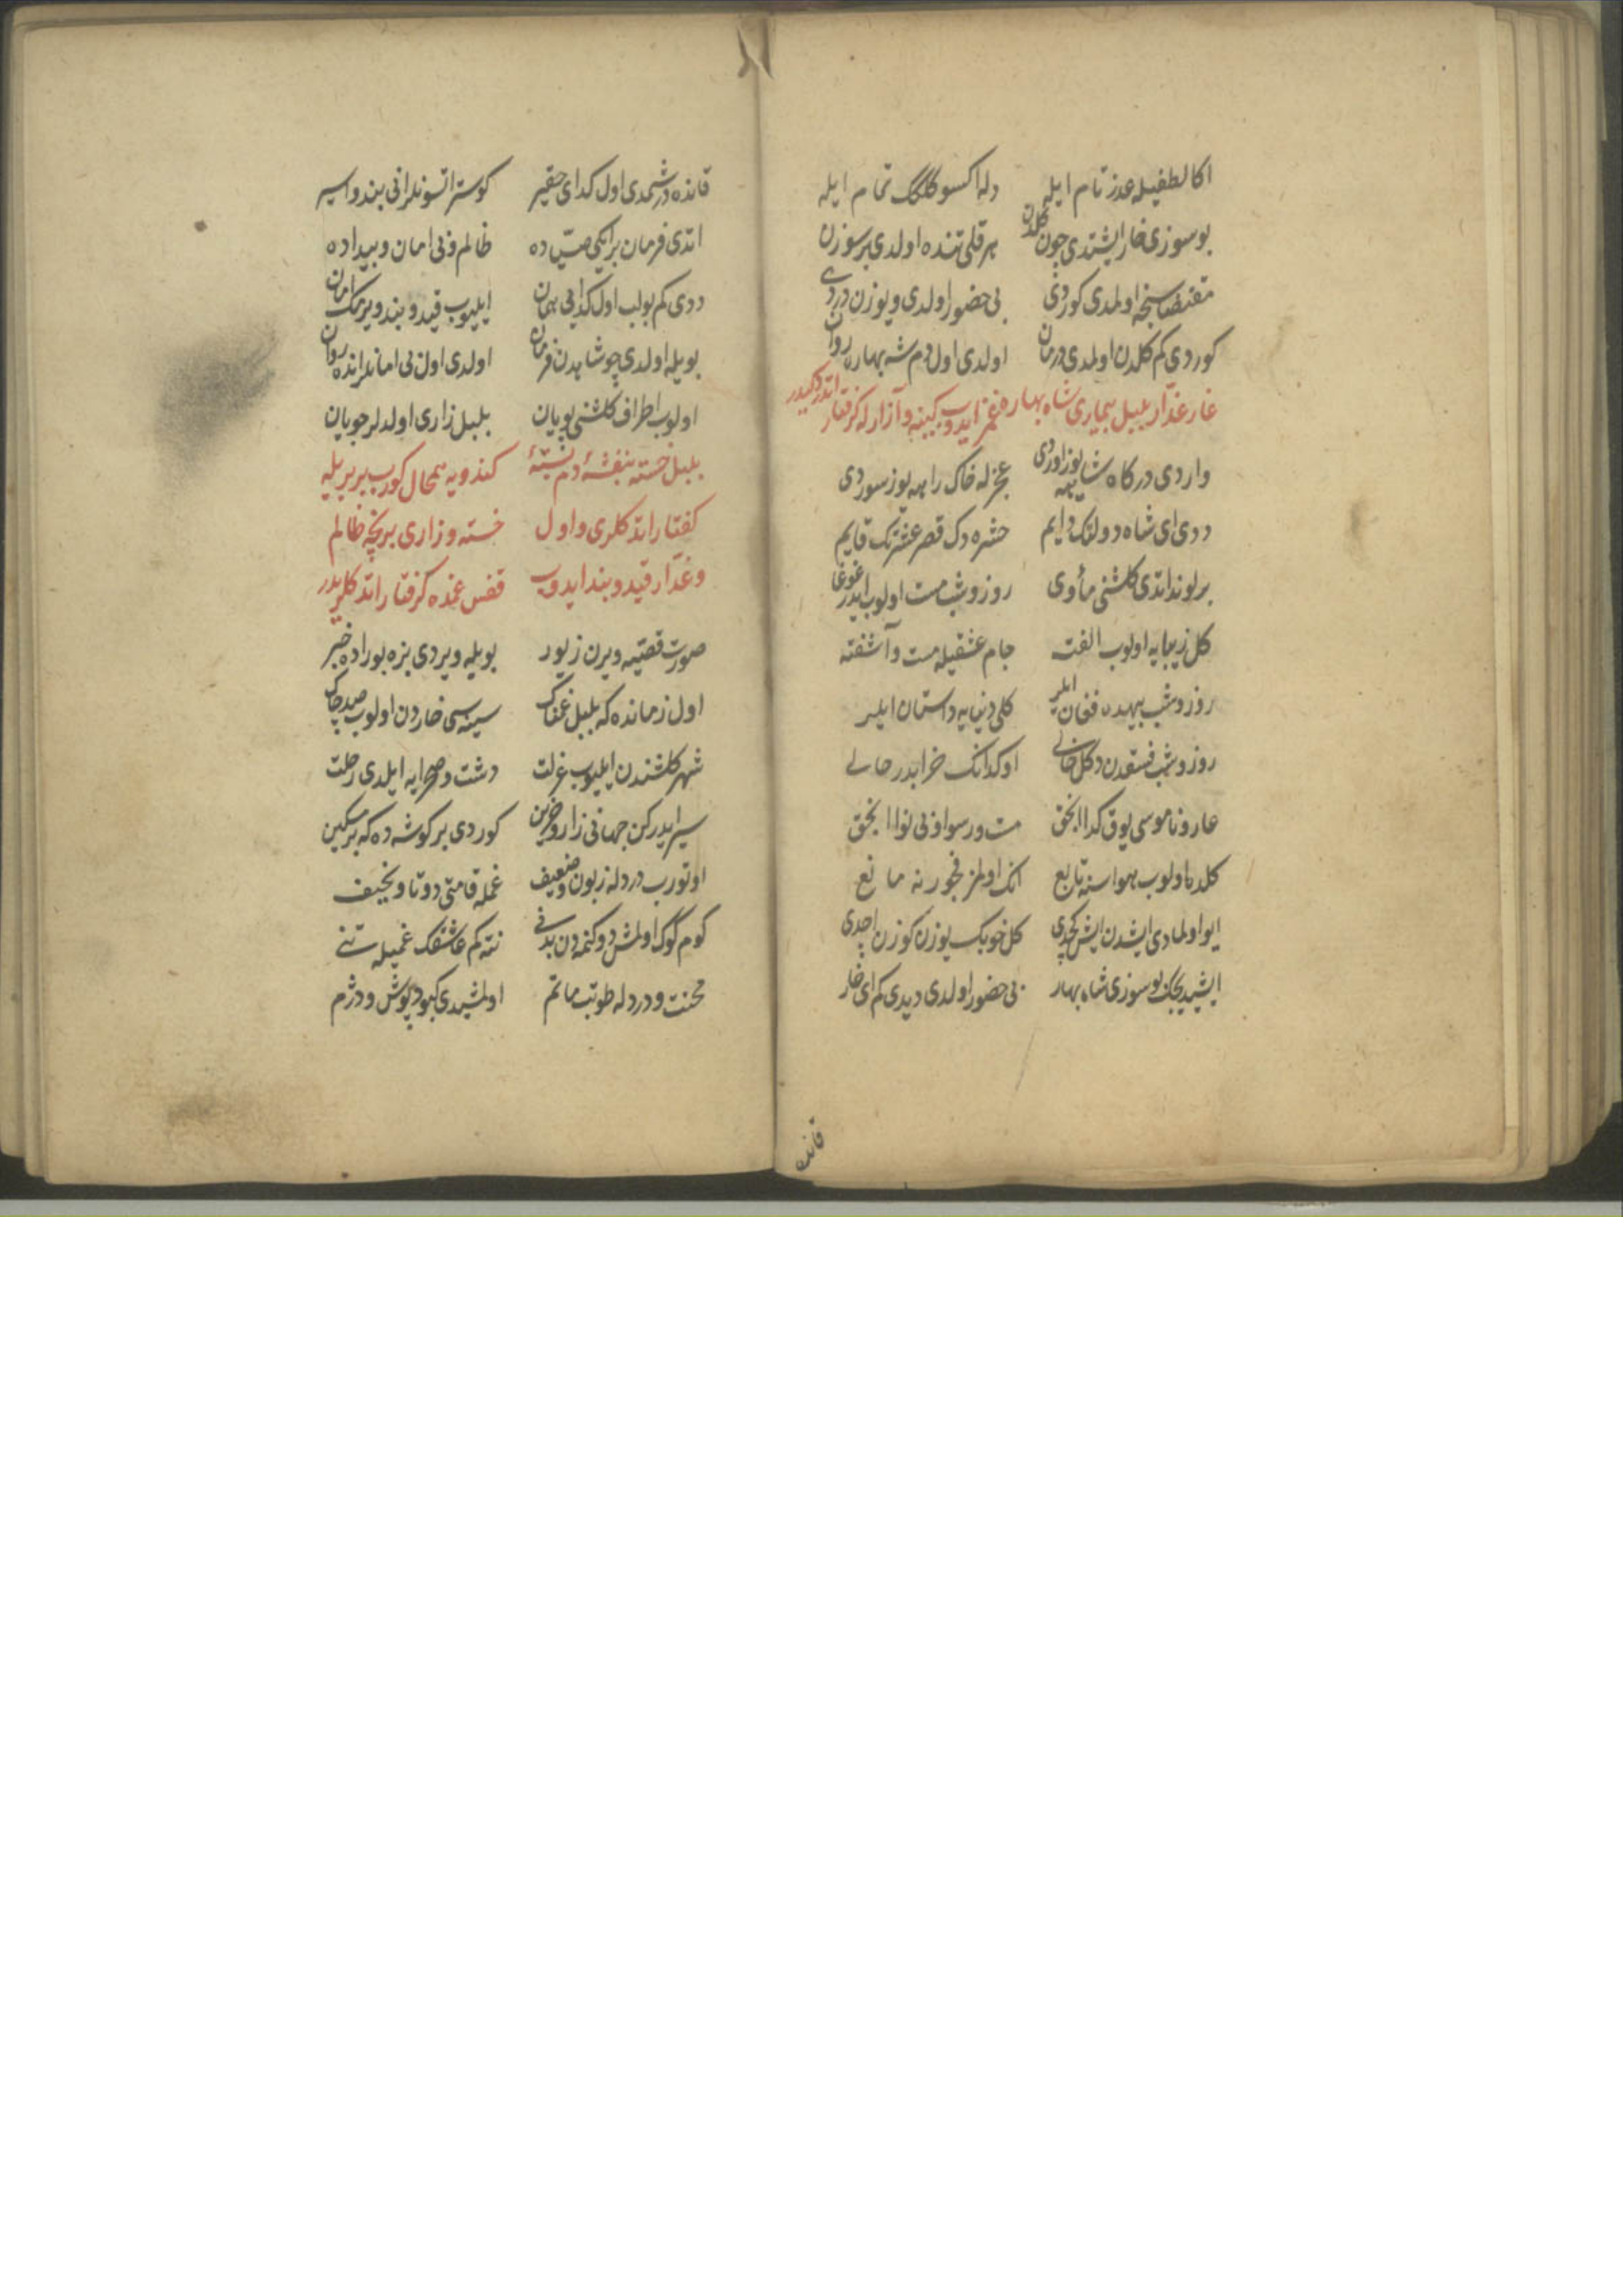 اكا لطفیله عذر تام ایله دله اكسوكلك تمام ایله
بو سوزی خار ایشتدی چون كلدن هر قلی تنده اولدی بر سوزن
مقتضاسنجه اولمدی كوردی بی حضور اولدی ویوزن دردی
كوردی كم كلدن اولمدی درمان اولدی اول دم شه بهاره روان
خار غدّار بلبل بیماری شاه بهاره غمز ایدوب كینه وآزارله كرفتار اتدوكیدر
واردی دركاه شاهه یوز اوردی عجزله خاك راهه یوز سوردی
ددی ای شاه دولتك دایم حشره دك قصر عشرتك قایم
بر لوند اتدی كلشنی مأوی روز وشب مست اولوب ایدر غوغا
كل زیبایه اولوب الفته جام عشقیله مست وآشفته
روز وشب بیهده فغان ایلر كلی دنیایه داستان ایلر
روز وشب فسقدن دكل خالی او كدانك خرابدر حالی
عار وناموسی یوق كدا الحق مست ورسوا وبی نوا الحق
كلده اولوب هواسنه تابع انك اولمز فجورنه مانع
ایو اولمادی ایشدن ایش كچدی كل خوبك یوزن كوزن اچدی
ایشیدیجك بو سوزی شاه بهار بی حضور اولدی دیدی كم ای خار
قانده
قانده در شمدی اول كدای حقیر كوستر اتسونلر انی بند واسیر
اتدی فرمان بر ایكی صیّاده ظالم وبی امان وبیداده
ددی كم بولب اول كدایی همان ایلیوب قید وبند ویرمك امان
بویله اولدی چو شاهدن فرمان اولدی اول بی امانلر انده روان
اولوب اطراف كلشنی پویان بلبل زاری اولدلر جویان
بلبل خسته بنفشهٔ دم بستهٔ كندویه همحال كورب بربریله
كفتار اتدكلری واول خسته وزاری بر نیچه ظالم
وغدّار قید وبند ایدوب قفس غمده كرفتار اتدكلریدر
صورت قصّه‌یه ویرن زیور بویله ویردی بزه بوراده خبر
اول زمانده كه بلبل غمناك سینه‌سی خاردن اولوب صد چاك
شهر كلشندن ایلیوب عزلت دشت وصحرایه ایلدی رحلت
سیر ایدركن جهانی زار وحزین كوردی بر كوشه‌ده كه بر مسكین
اوتورب دردله زبون وضعیف غمله قامتی دوتا ونحیف
كوم كوك اولمش دوكنمه‌دن بدنی نته كم عاشقك غمیله تنی
محنت ودردله طوتب ماتم اولمشیدی كبود پوش ودژم